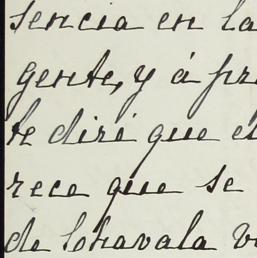 sencia en la
gente, y á pr
te diré que e
rece que se
de Echavala v